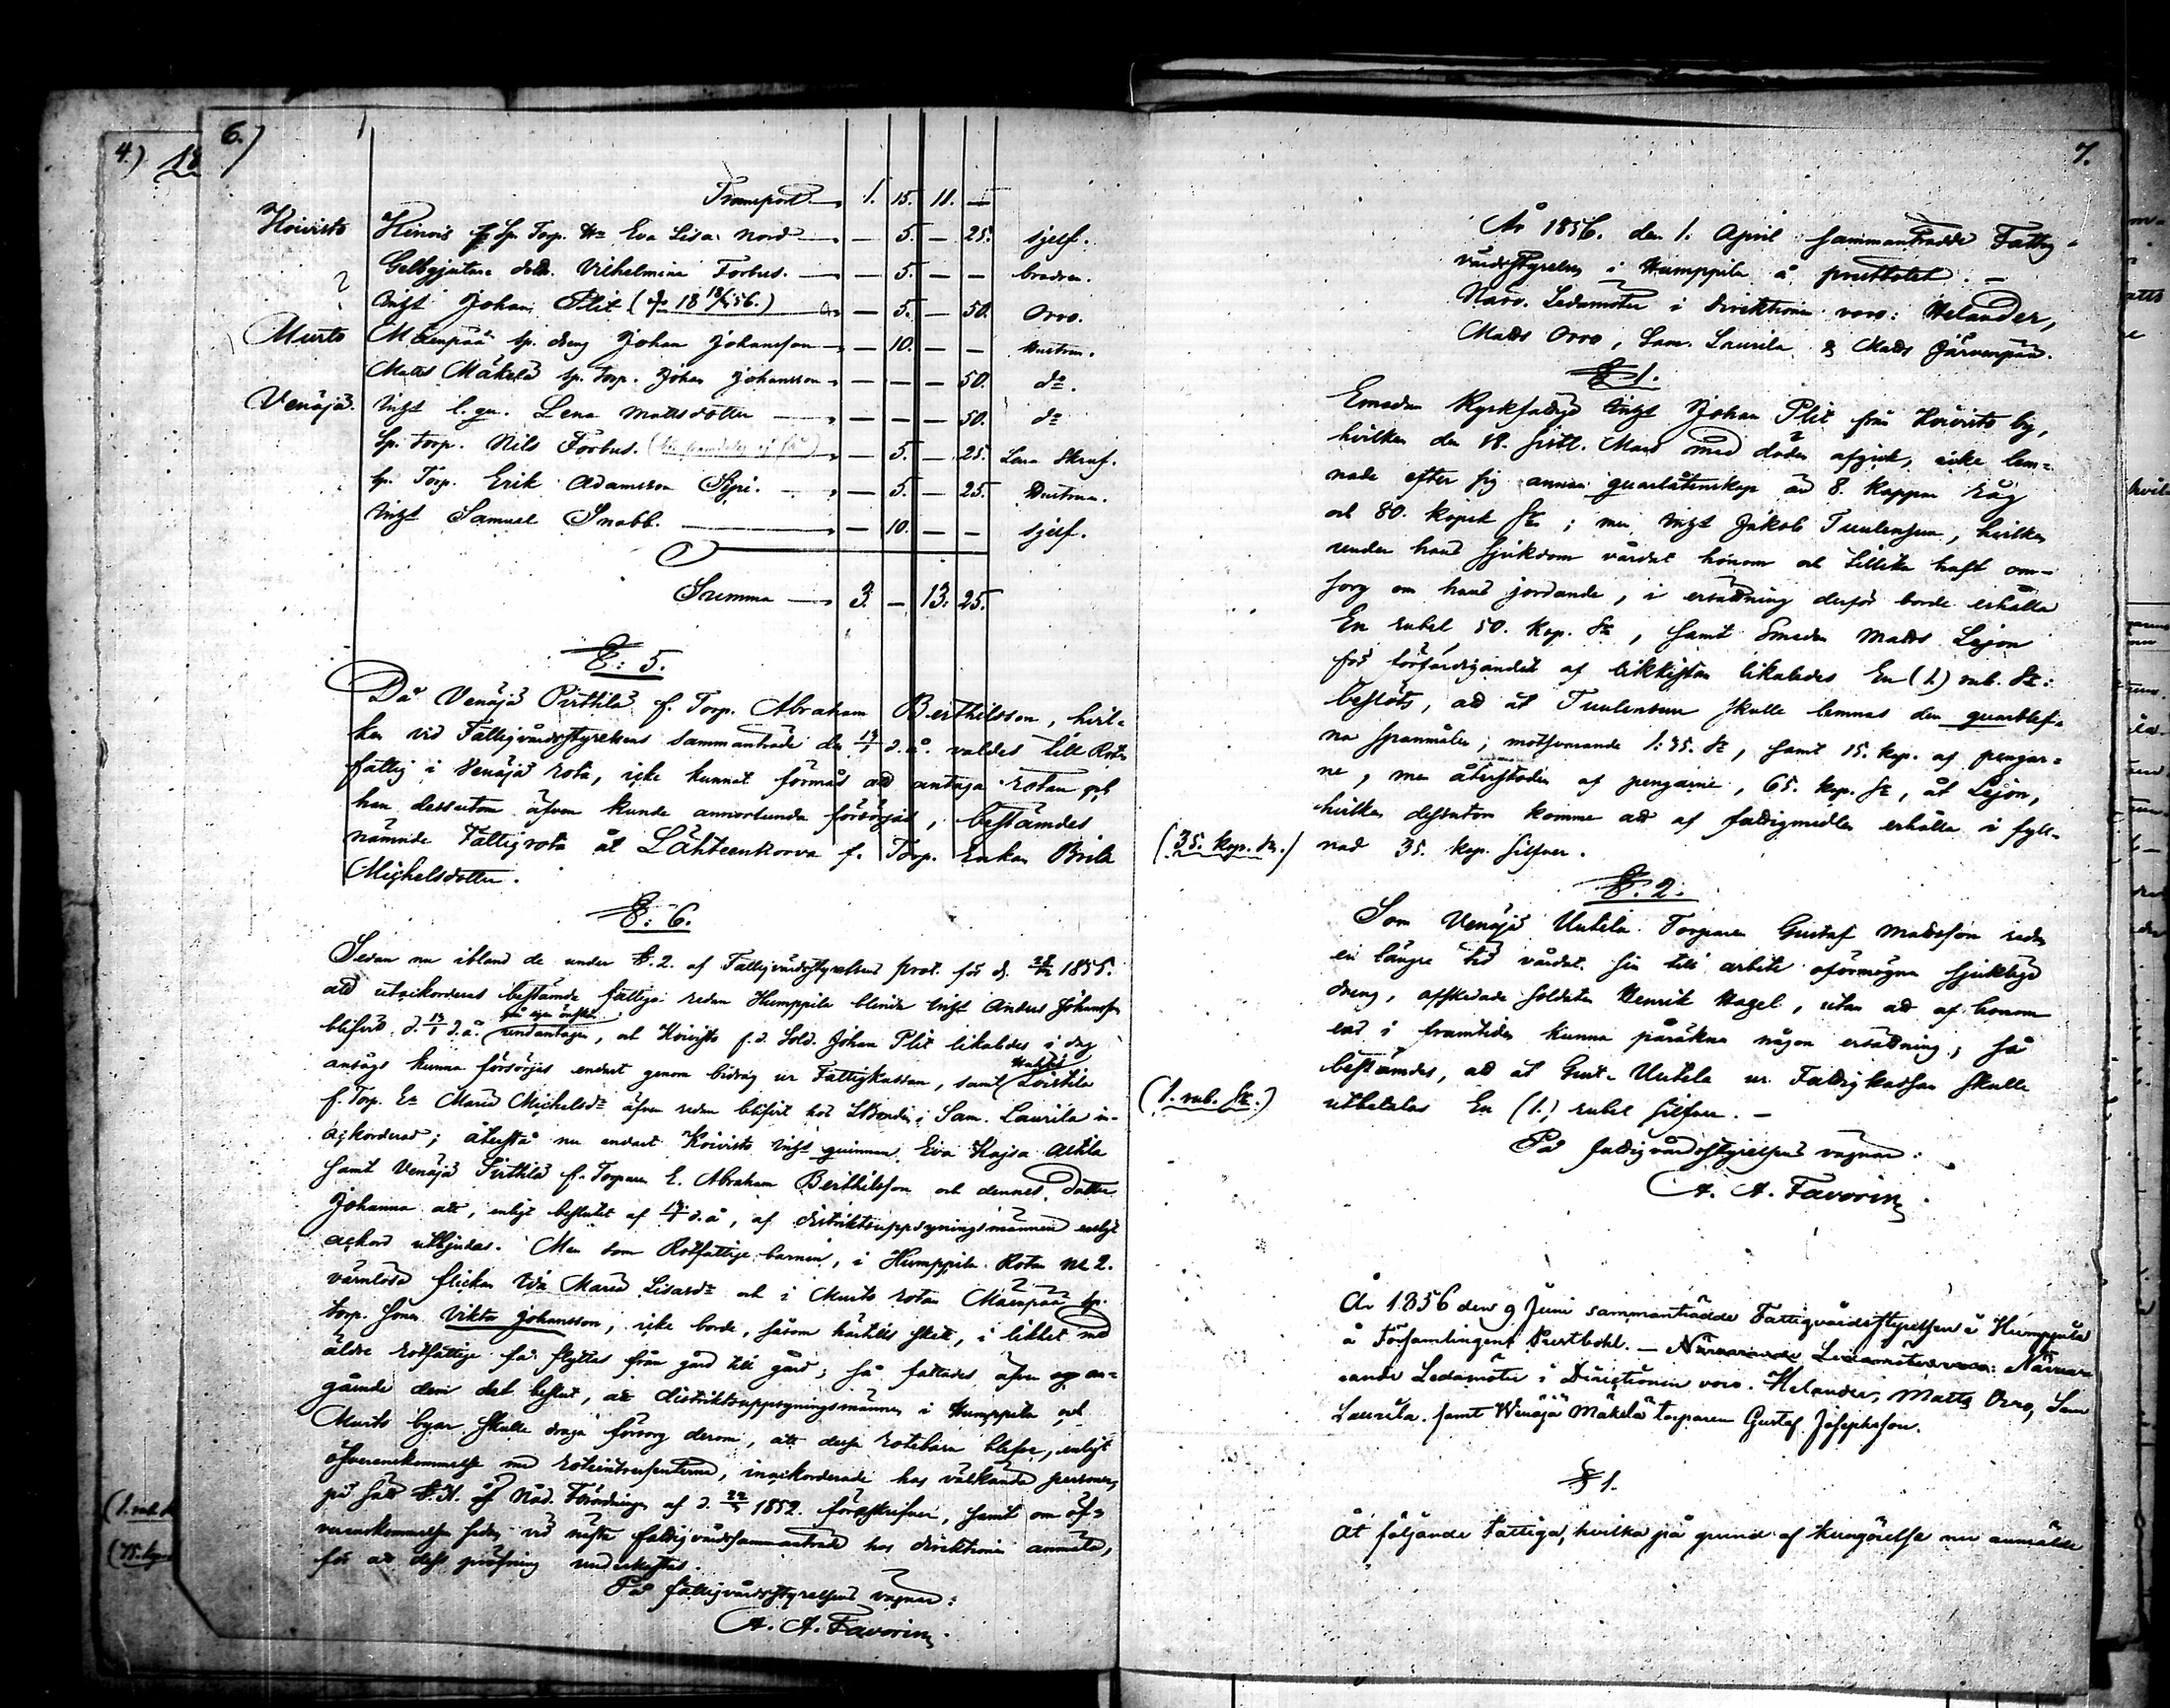 4.)
6.)
Transport 1. 15. 11. —
Koivisto Hinois f. Sp. Torp. Eva Lisa Nord — 5. — 25. sjelf.
Gelbgjutare dott. Vilhelmina Forbus. — 5. — — brodren.
? Inhst Johan Plit (18 18/3 56.) — 5. — 50. Orro.
Murto Mäenpää sp. dreng Johan Johansson — 10. — — Hustrun.
Matts Mäkelä sp. torp. Johan Johansson — — — 50. do.
Venäjä. Inhst l. qu. Lena Mattsdotter — — — 50. do
Sp. torp. Nils Forbus. — 5. — 25. Lena Skruf.
Sp. Torp. Erik Adamsson Sipi. — 5. — 25. Hustrun.
Inhst Samuel Snabb. — 10. — — sjelf.
Summa 3. — 13. 25.
§: 5.
Då Venäjä Pirttilä f. Torp. Abraham Berthilsson, hvil-
ken vid Fattigvårdsstyrelsens sammanträde d. d. å. valdes till Rote-
fattig i Venäjä rota, icke kunnat förmås att antaga rotan och
han dessutom äfven kunde annorlunda försörjas, bestämdes
nämnde Fattigrota åt Lähteenkorva f. Torp. Enkan Brita
Michelsdotter.
§: 6.
Sedan nu ibland de under §. 2. af Fattigvårdsstyrelsens prot. för d. 1855.
att utackorderas bestämde fattige redan Humppila blinde Inhst Anders Johansson
blifvit d. d. å. på egen önskan undantagen, och Koivisto f. d. Sold. Johan Plit likaledes i dag
ansågs kunna försörjas endast genom bidrag ur Fattigkassan, samt Loistila
f. Torp. Ea Maria Michelsdr äfven redan blifvit hos Sam. Laurila in-
ackorderad; återstå nu endast Koivisto Inhst qvinnan Eva Kajsa Achla
samt Venäjä Pirttilä f. Torparen E. Abraham Berthilsson och dennes dotter
Johanna att, enligt beslutet af d. å, af distriktsuppsyningsmännen enligt
ackord utbjudas. Men som Rotfattige barnen, i Humppila Rotan No 2.
värnlösa flickan Ida Maria Lisasdr och i Murto rotan Mäenpää sp.
torp. sonen Viktor Johansson, icke borde, såsom härtills skett, i likhet med
äldre rotfattige få flyttas från gård till gård; så fattades äfven an-
gående dem det beslut, att distriktsuppsyningsmännen i Humppila och
Murto byar skulle draga försorg derom, att dessa rotebarn blefve, enligt
öfverenskommelse med roteintressenterna, inackorderade hos välkända personer,
på sätt §. 31. af Nåd. Förordningen af d. 22/3 1852. föreskrifver, samt om öf-
verenskommelsen sedan vid nästa fattigvårdssammanträde hos direktionen anmäla,
för att dess pröfning underkastas.
På fattigvårdsstyrelsens vägnar:
A. A. Favorin
7.
År 1856. den 1. April sammanträdde Fattig-
vårdsstyrelsen i Humppila å prestbolet. —
Närv. Ledamöter i direktionen voro: Helander,
Matts Orro, Sam. Laurila & Matts Järvenpää.
§ 1.
Emedan Kyrkfattige Inhst Johan Plit från Koivisto by,
hvilken den 18. sistl. Mars med döden afgick, icke lem-
nade efter sig annan qvarlåtenskap än 8. kappar Råg
och 80. kopek Sr; men Inhst Jakob Tuulensuu, hvilken
under hans sjukdom vårdat honom och tillika haft om-
sorg om hans jordande, i ersättning derför borde erhålla
En rubel 50. kop. Sr, samt Smeden Matts Lejon
för förfärdigandet af likkistan likaledes En (1) rub. Sr:
beslöts, att åt Tuulensuu skulle lemnas den qvarblef-
na spanmålen, motsvarande 1: 35. Sr, samt 15. kop. af pengar-
ne, men återstoden af pengarne, 65. kop. Sr, åt Lejon,
hvilken dessutom komme att af fattigmedlen erhålla i fyll-
(35. kop. Sr.) nad 35. kop. silfver.
§. 2.
Som Venäjä Uutela Torparen Gustaf Mattsson redan
en längre tid vårdat sin till arbete oförmögna sjuklige
dreng, afskedade soldaten Henrik Hagel, utan att af honom
ens i framtiden kunna påräkna någon ersättning; så
bestämdes, att åt Gust. Uutela ur Fattigkassan skulle
(1. rub. Sr.) utbetalas En (1.) rubel silfver. —
På fattigvårdsstyrelsens vägnar:
A. A. Favorin
År 1856 den 9 Juni sammanträdde Fattigvårdsstyrelsen i Humppila
å Församlingens Prestbohl. — Närvarande Ledamöter voro: Närva-
rande Ledamöter i Direcktionen voro. Helander, Matts Orro, Sam
Laurila. samt Wenäjä Mäkelä torparen Gustaf Josephsson.
§ 1.
Åt följande Fattiga, hvilka på grund af kungörelse nu anmälde